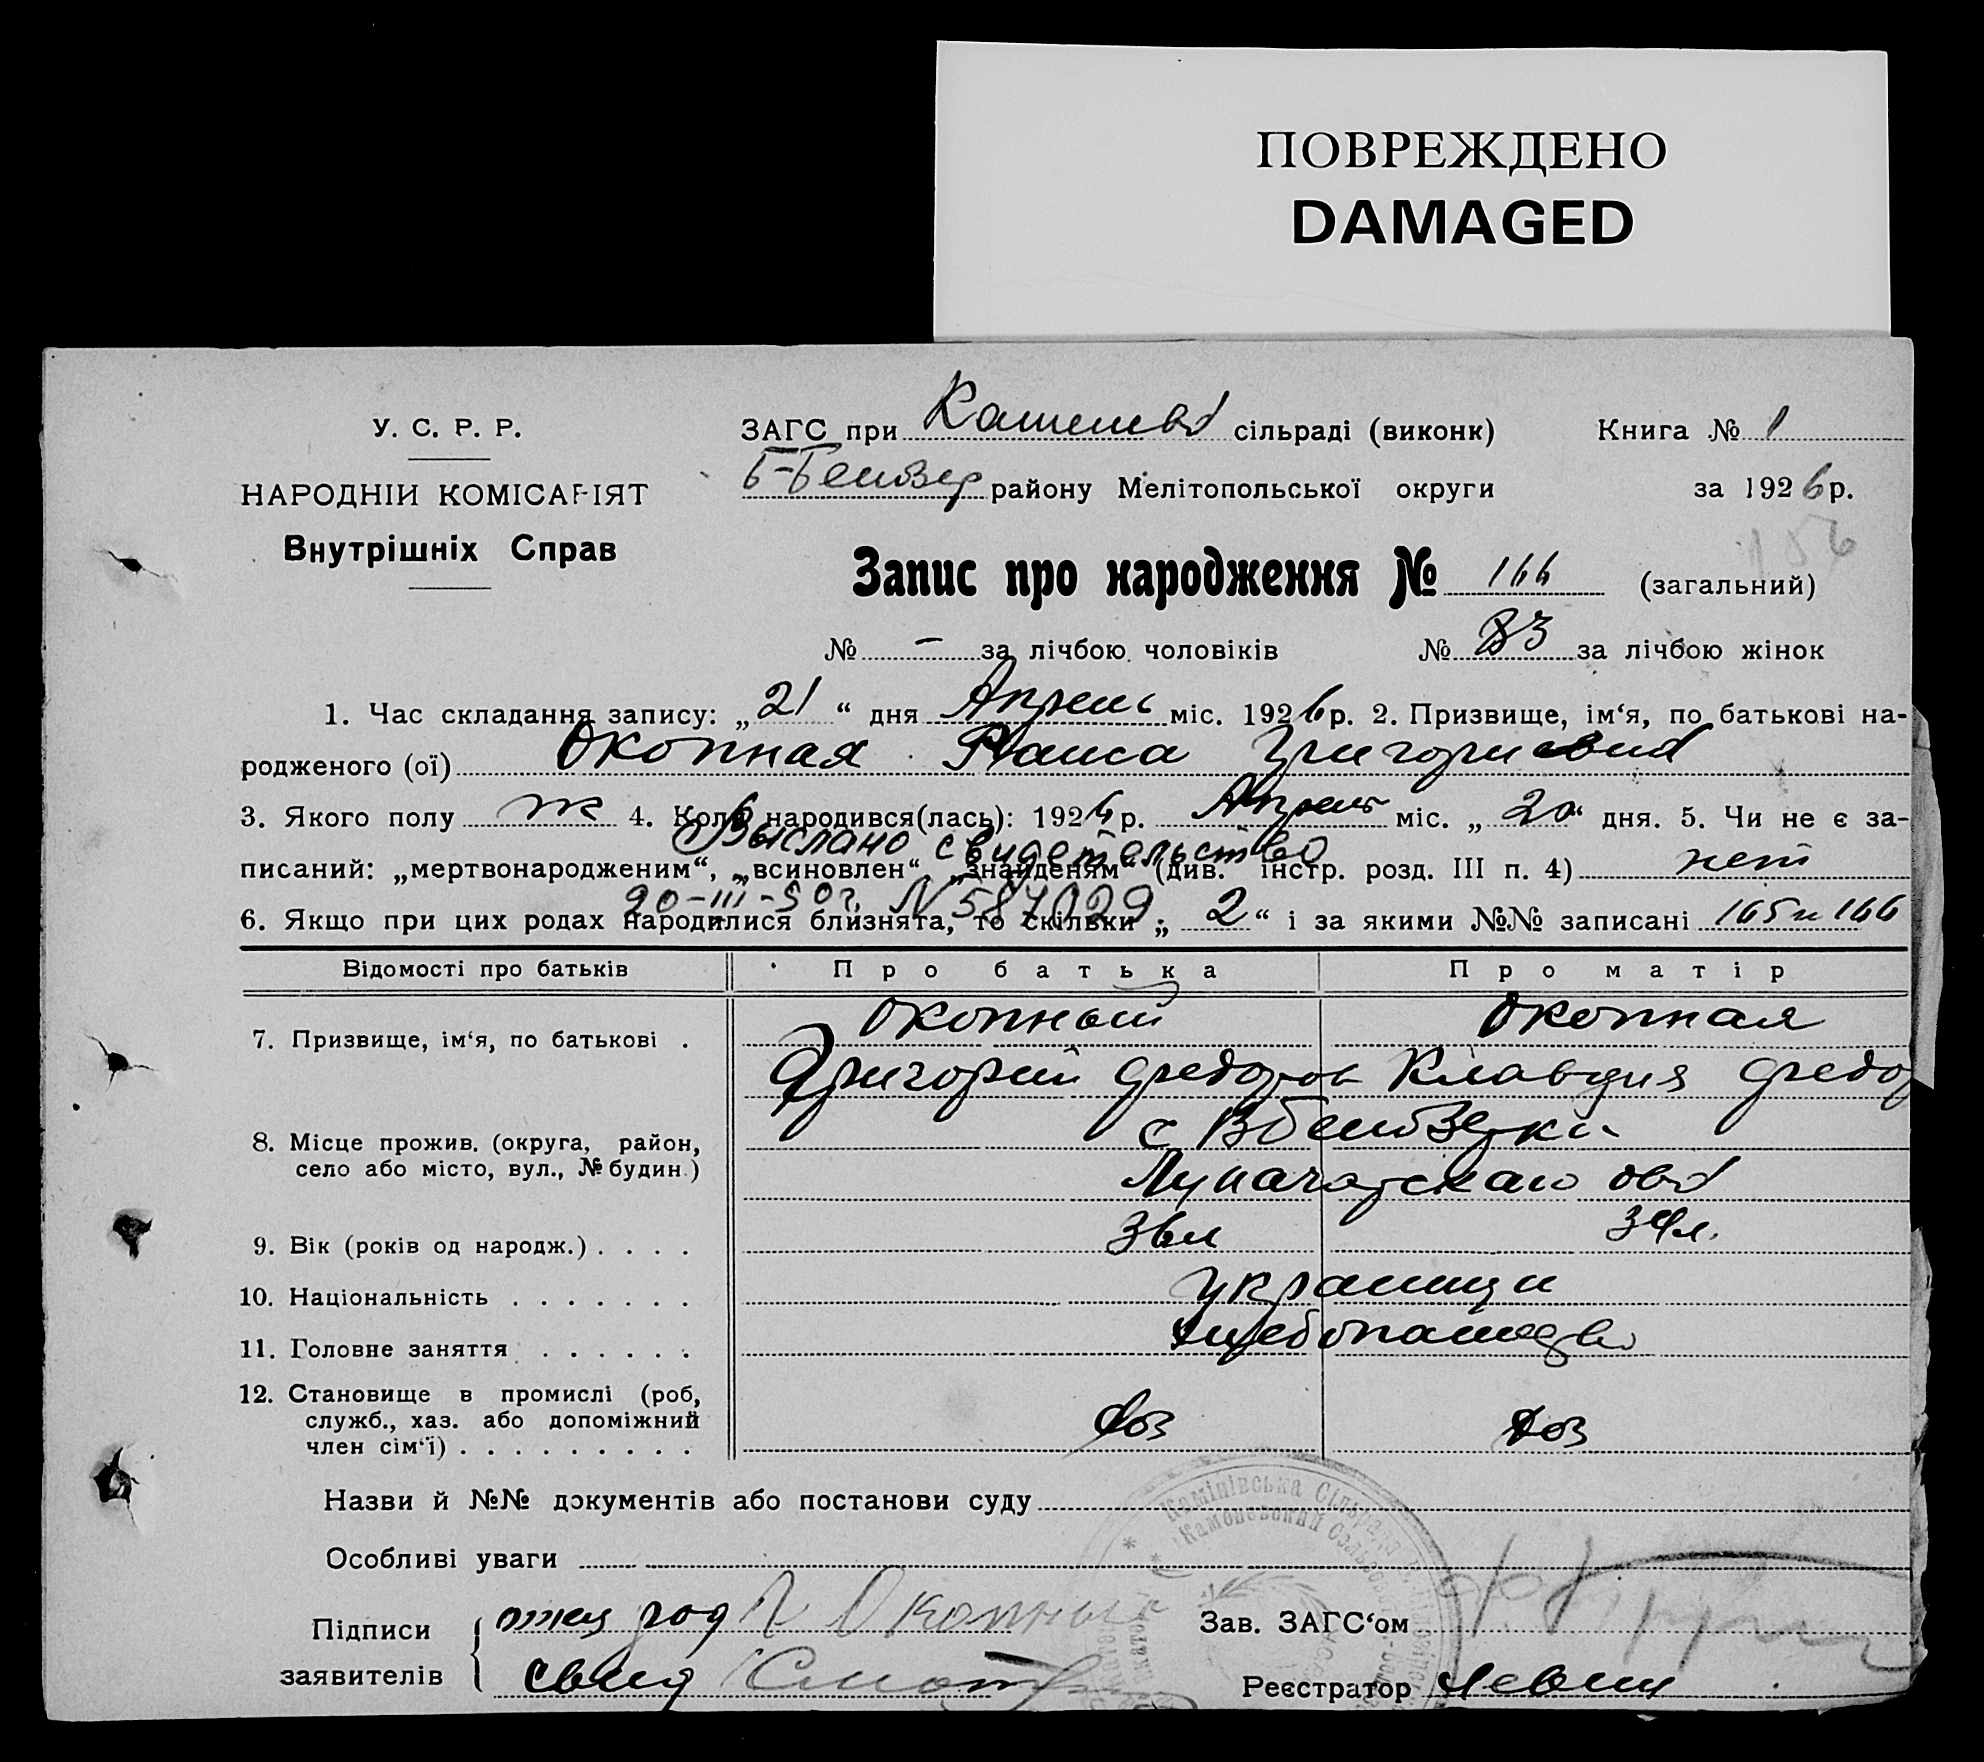 ПОВРЕЖДЕНО
DAMAGED
У. С. Р. Р.
НАРОДНІЙ КОМІСАРІЯТ
Внутрішніх Справ
ЗАГС при сільраді (виконк) Книга № 1
району Мелітопольської округи за 1926 р.
156
Запис про народження № 166 (загальний)
№ – за лічбою чоловіків № 83 за лічбою жінок
1. Час складання запису: „21“ дня Апрель міс. 1926 р. 2. Призвище, ім‘я, по батькові на-
родженого (ої) Окопная Раиса
3. Якого полу ж 4. Коли народився(лась): 1926 р. Апрель міс. „20“ дня. 5. Чи не є за-
Выслано свидетельство
писаний: „мертвонародженим“, „всиновлен“, „знайденям“ (див. інстр. розд. III п. 4) нет
20-III-50г. N 587029
6. Якщо при цих родах народилися близнята, то скільки „2“ і за якими №№ записані 165 и 166
Відомості про батьків Про батька Про матір
7. Призвище, ім‘я, по батькові . Окопный Окопная
Григорий Федотов Клавдия Федо
8. Місце прожив. (округа, район,
село або місто, вул., № будин.)
9. Вік (років од народж.) . . . . 36л 34л.
10. Національність . . . . . . . украинци
11. Головне заняття . . . . . . хлебопашедво
12. Становище в промислі (роб,
служб., хаз. або допоміжний
член сім‘ї) . . . . . . . . . хоз хоз
Назви й №№ документів або постанови суду
Особливі уваги
Підписи
заявителів
Г Окопный
свид
Зав. ЗАГС‘ом
Реєстратор
Камінівська Сільрада